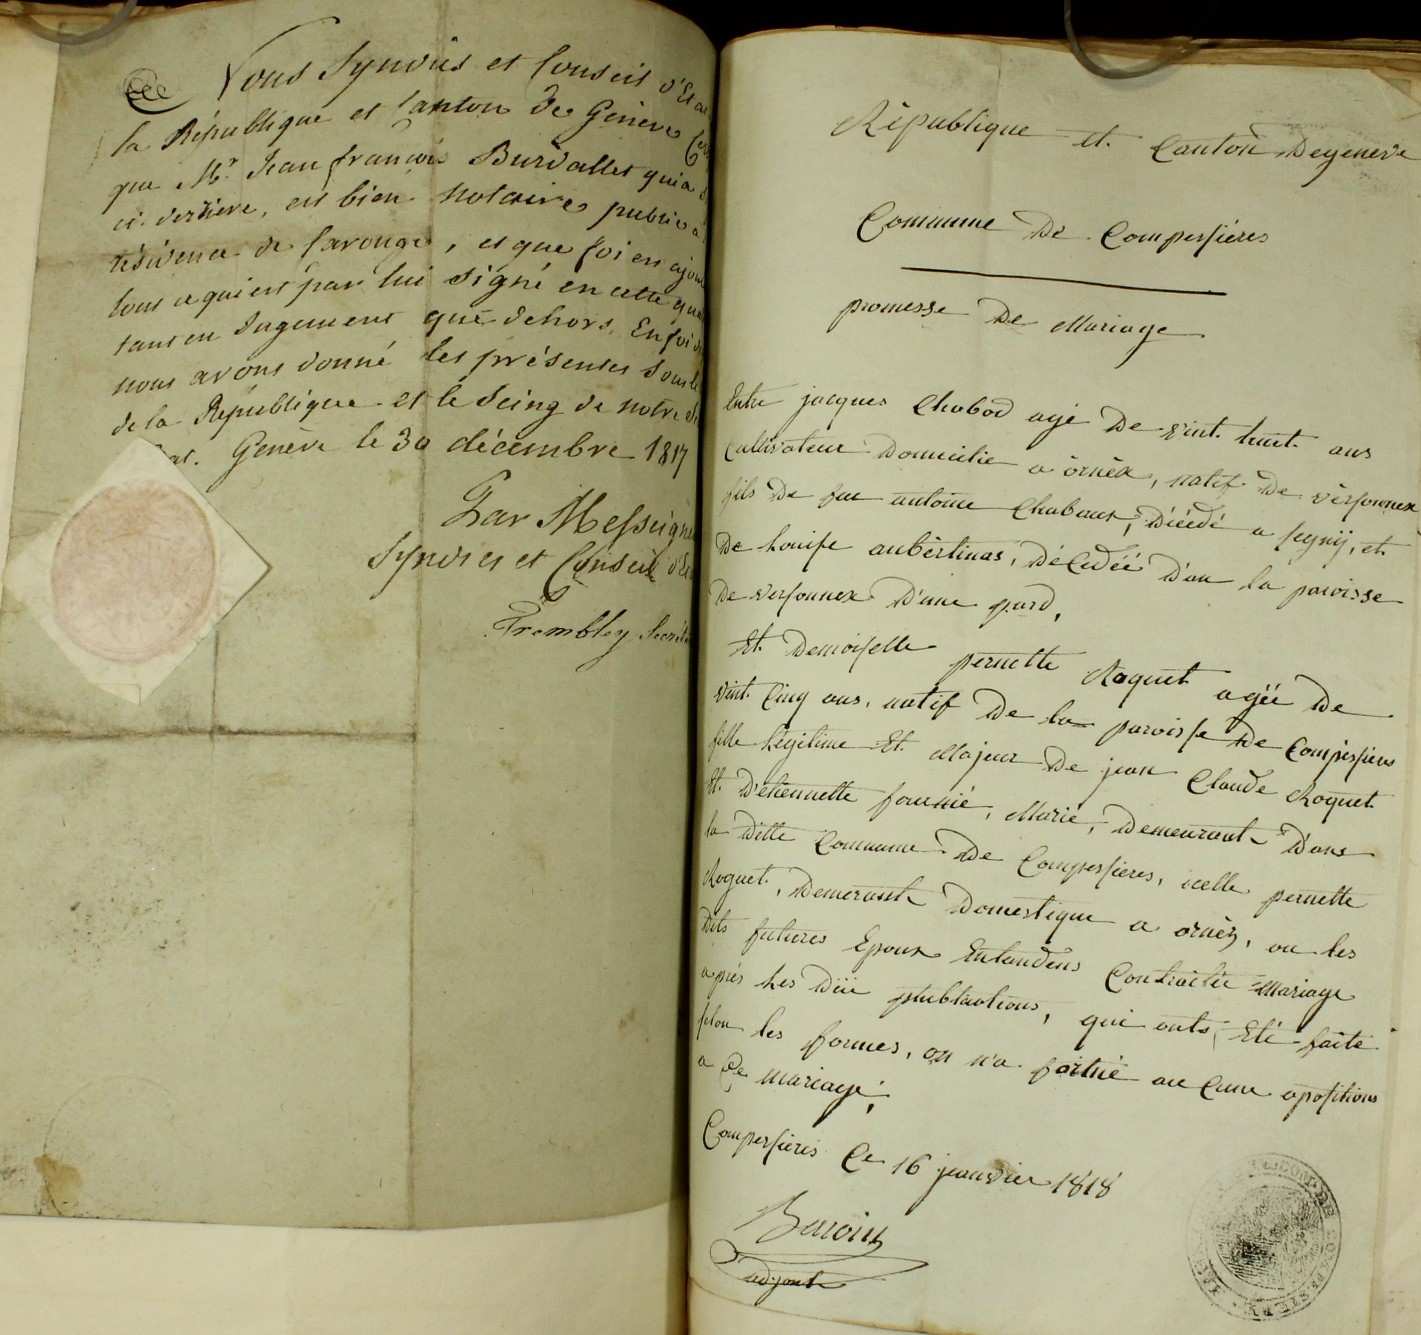 Nous Syndics et Conseil d'Etat
la République et Canton de Genève
que Mr. Jean françois Burdallet qui a
ci derrière, est bien notaire public à
résidence de Carouge, et que foi est ajou
tout ce qui est par lui signé en cette qua
tant en Jugement que dehors. En foi de
nous avons donné les présentes sous le
de la République et le Seing de notre
Genève le 30 décembre 1817
Par Messeigne
Syndics et Conseil d'Et
Trembley Secrét
République et Canton Degeneve
Commune De Compessieres
promesse De Mariage
Entre jacques Chabod agé De vint huit ans
Cultivateur Domicilie a ornèx, natif De vèrsonnex
fils De feu antoine Chabaux, Décédé a segny, et
De Louise aubèrtinas, décedéé D'an la paroisse
De versonnex D'une pard,
Et Demoiselle pernette Roquet agéé De
vint Cinq ans, natif De la paroisse De Compèssieres
fille Légitime Et Majeur De jean Claude Roquet
Et D'etiennette fournié, Marié, Demeurant D'ans
la Ditte Commune De Compessieres, icelle pernette
Roquet, Demerant Domestique a ornèx, ou les
Dits futures Epoux Entandens Contractér Mariage
aprés Les Düe publications, qui onts Eté faite
selon les formes, on n'a formé au Cune opositions
a Ce mariage,
Compessieres Ce 16 jeanvier 1818
adjoint